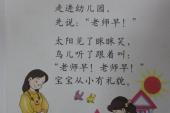 走进幼儿园，
先说：“老师早！”
太阳见了眯眯笑，
鸟儿听了跟着叫：
“老师早！老师早！”
宝宝从小有礼貌，